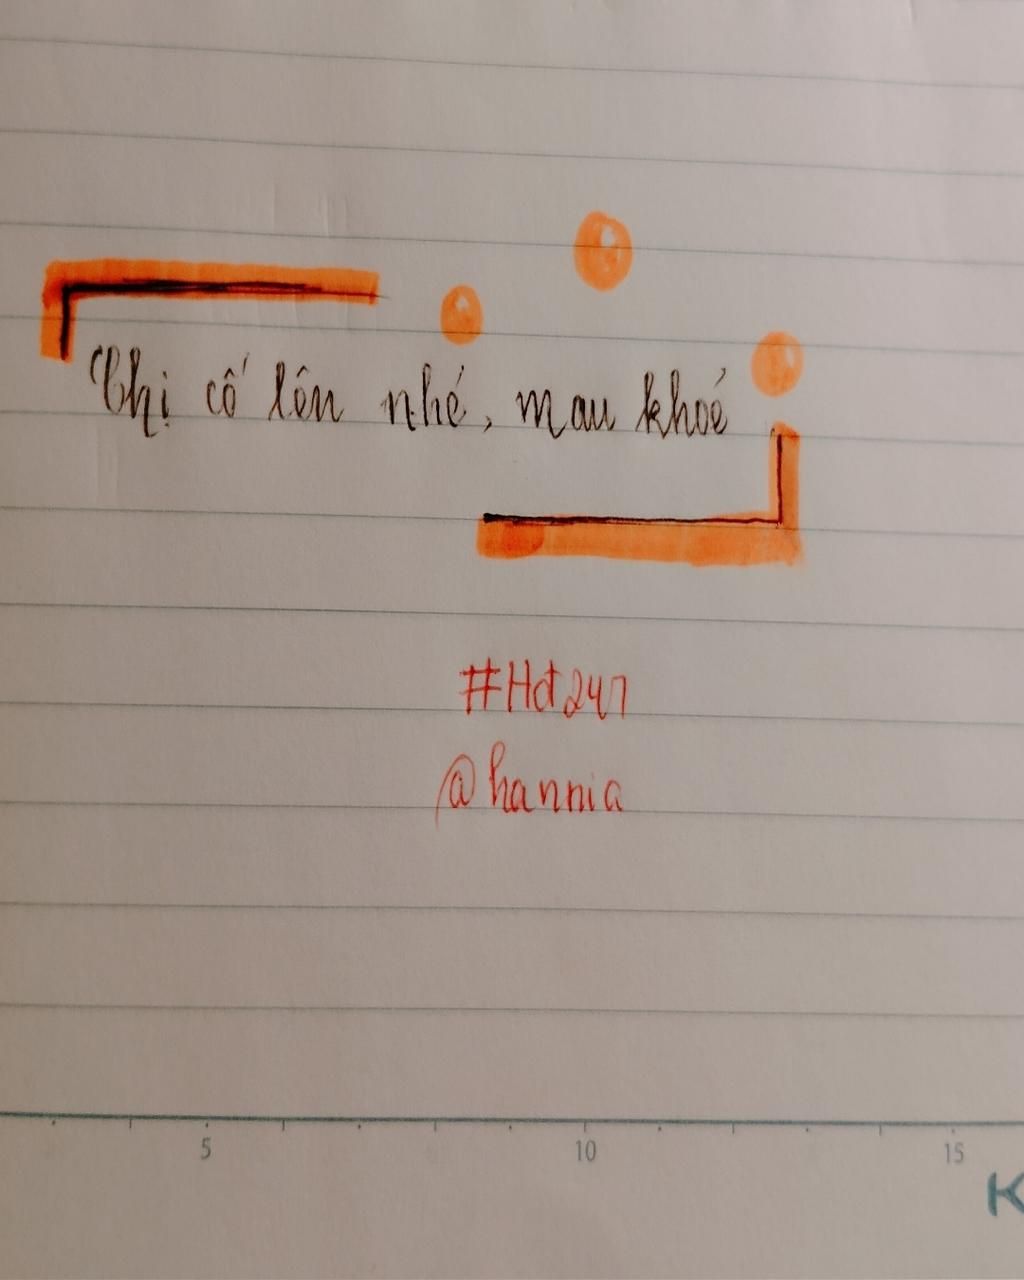 Chị cố lên nhé, mau khoẻ
#Hđ247
@hannia
5 10 15
K